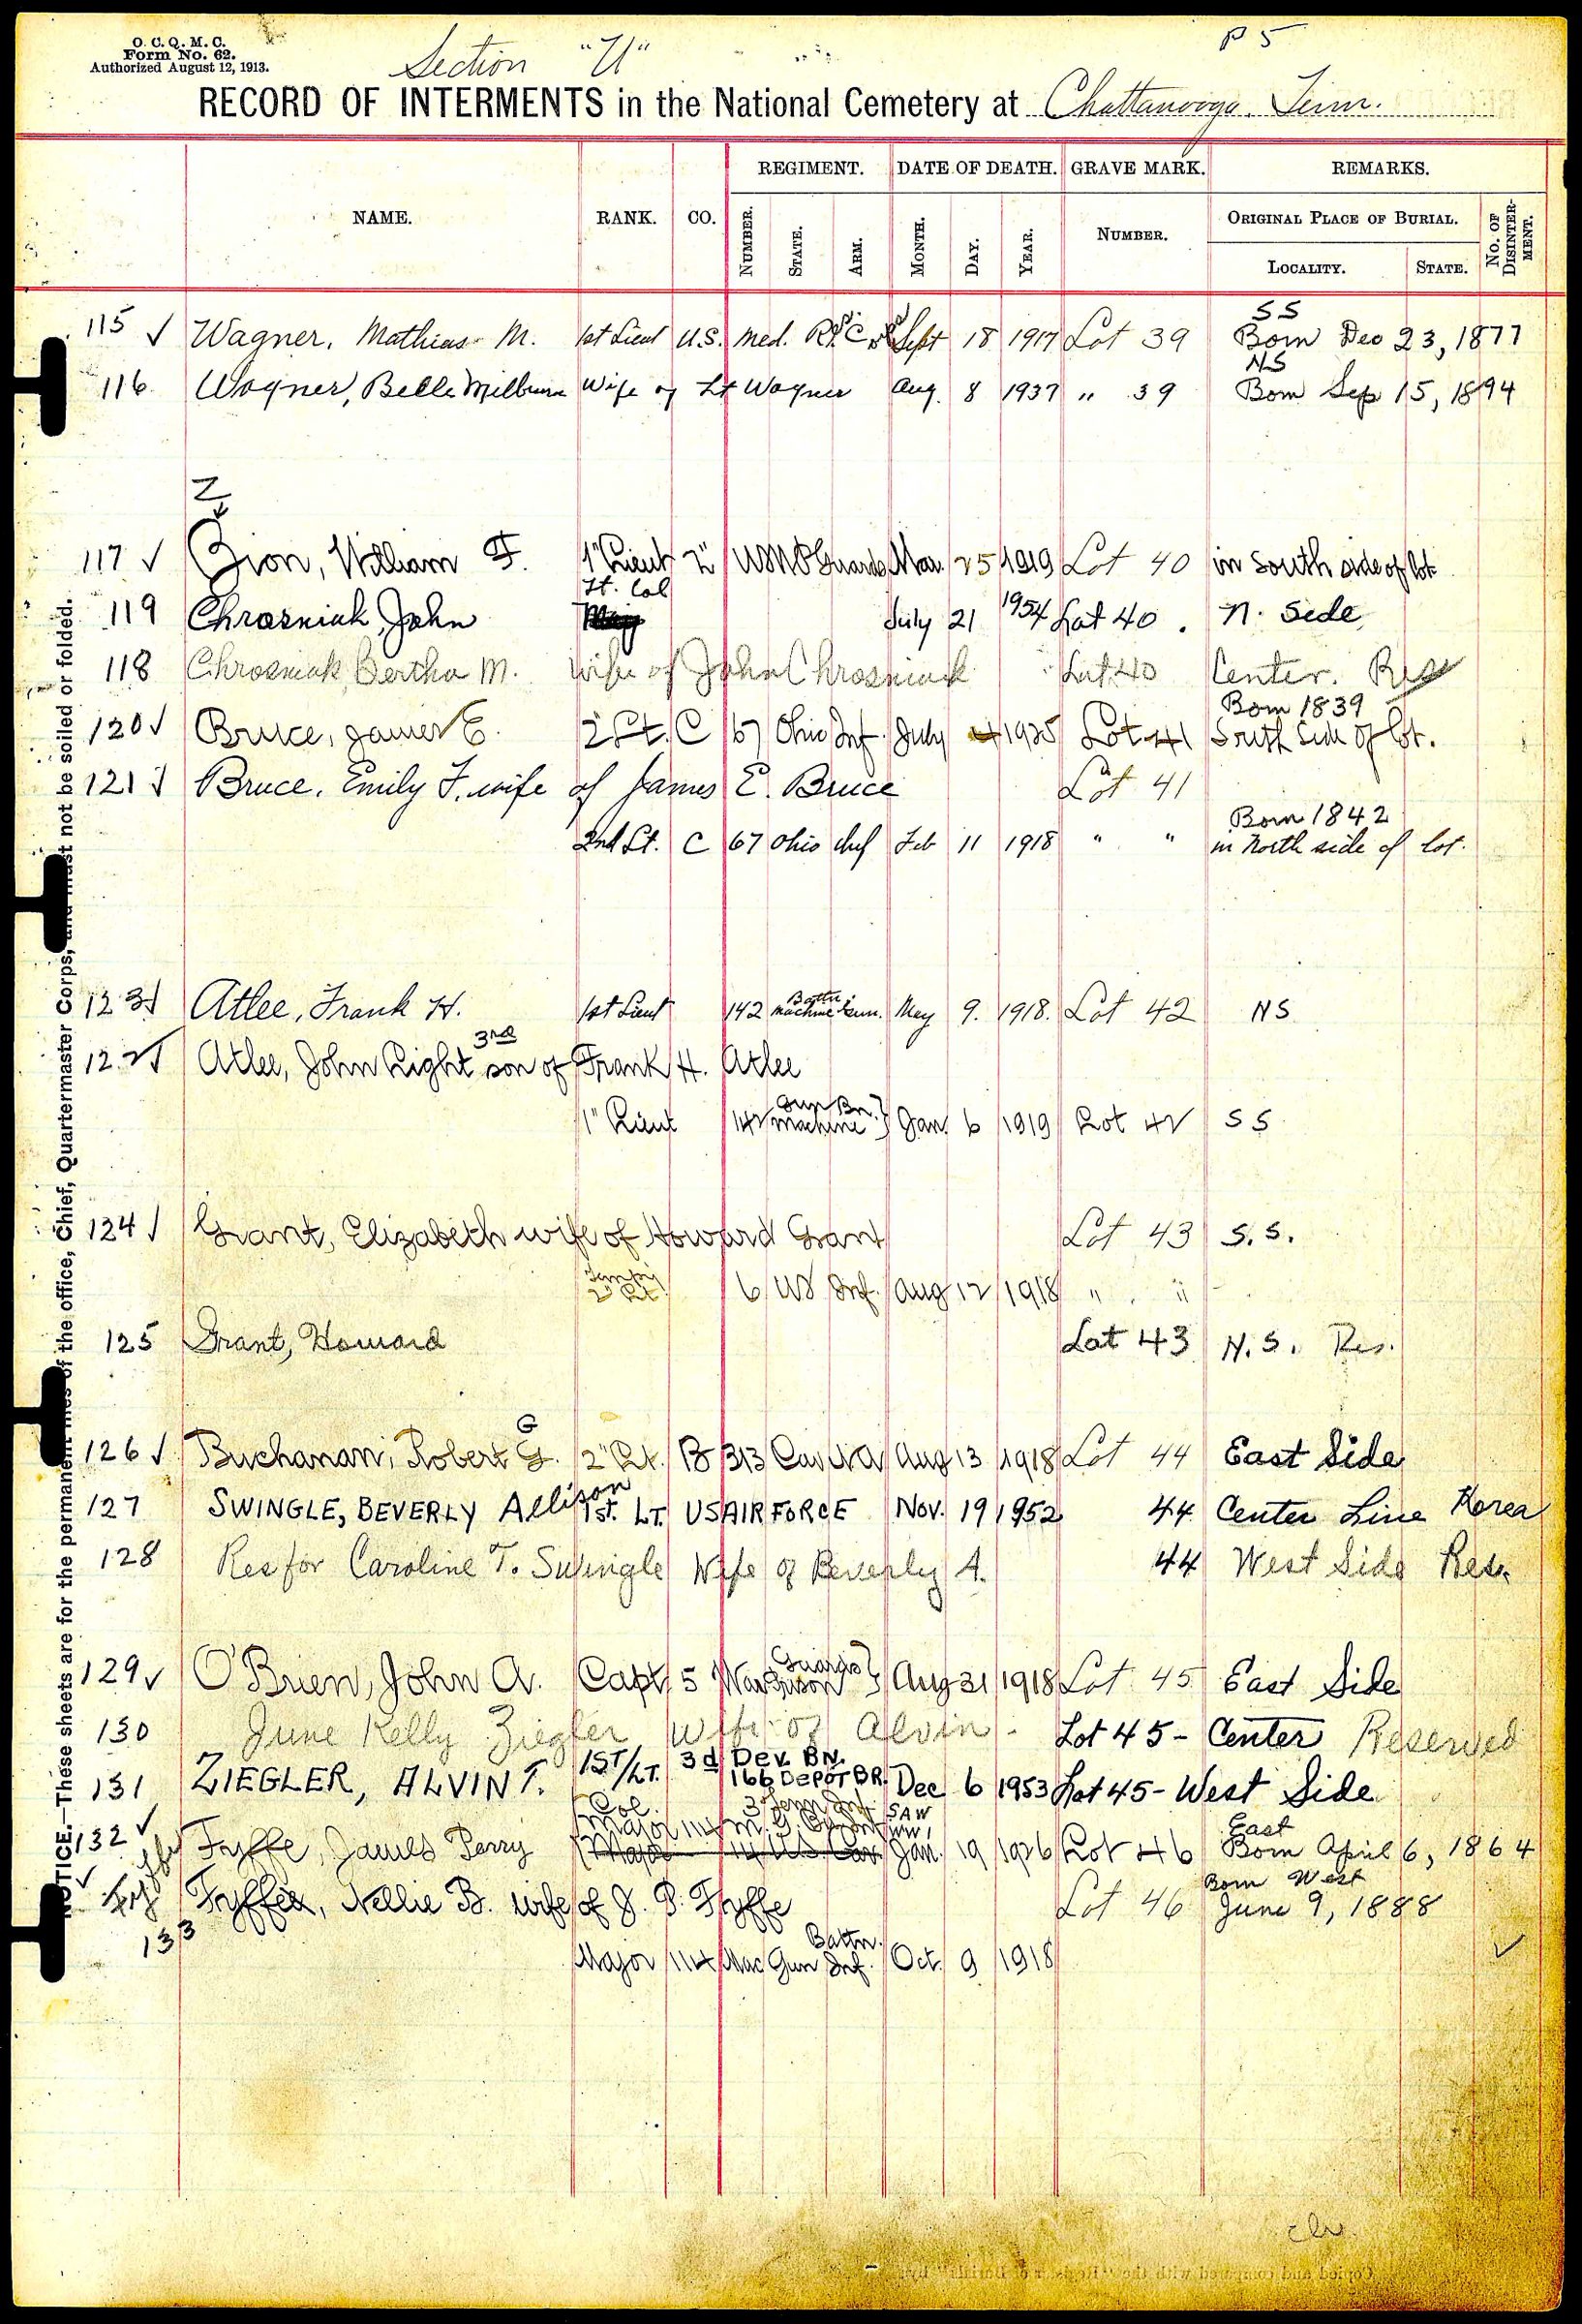 O. C. Q. M. C.
Form No. 62.
Authorized August 12, 1913.
Section "U"
P 5
RECORD OF INTERMENTS in the National Cemetery at Chattanooga, Tenn.
NAME. RANK. CO. REGIMENT. DATE OF DEATH. GRAVE MARK. REMARKS.
NUMBER. STATE. ARM. MONTH. DAY. YEAR. NUMBER. ORIGINAL PLACE OF BURIAL. NO. OF DISINTER-MENT.
LOCALITY. STATE.
SS
115 ✓ Wagner, Mathias M. 1st Lieut U.S. Med. Sept 18 1917 Lot 39 Born Dec 23, 1877
NS
116 Wagner, Belle Milburn Wife of Lt Wagner Aug. 8 1937 " 39 Born Sep 15, 1894
Z
117 ✓ Zion, William F. 1" Lieut 2" USNO Guards Mar. 25 1919 Lot 40 in South side of lot
Lt. Col
119 Chrosniak, John July 21 1954 Lot 40. N. Side
118 Chrosniak, Bertha M. Wife of John Chrosniak Lot 40 Center. Res
Born 1839
120 ✓ Bruce, James E. 2" Lt. C 67 Ohio Inf. July 4 1925 Lot 41 South Side of lot.
121 ✓ Bruce, Emily F. wife of James E. Bruce Lot 41
Born 1842
2nd Lt. C 67 Ohio Inf Feb 11 1918 " " in North side of lot.
123 ✓ Atlee, Frank H. 1st Lieut 142 Machine Gun. Battn. May 9. 1918. Lot 42 NS
3rd
122 ✓ Atlee, John Right son of Frank H. Atlee
Gun Bn.
1" Lieut 142 Machine Jan. 6 1919 Lot 42 S S
124 ✓ Grant, Elizabeth wife of Howard Grant Lot 43 S. S.
Tempy
2" Lt. 6 US Inf. Aug 12 1918 " "
125 Grant, Howard Lot 43 N. S. Res.
G
126 ✓ Buchanan, Robert G. 2" Lt. B 313 Cav NA Aug 13 1918 Lot 44 East Side
127 SWINGLE, BEVERLY Allison 1ST. LT. US AIR FORCE Nov. 19 1952 44 Center Line Korea
128 Res for Caroline T. Swingle Wife of Beverly A. 44 West Side Res.
Guards
129 ✓ O'Brien, John A. Capt 5 War Prison Aug 31 1918 Lot 45 East Side
130 June Kelly Ziegler wife of Alvin - Lot 45 - Center Reserved
131 ZIEGLER, ALVIN T. 1ST/LT. 3d DEV. BN. 166 DEPOT BR. Dec 6 1953 Lot 45 - West Side
Col. 3 Tenn Inf. SAW
Major 114 M. G. WW 1 East
132 ✓ Fyffe, James Perry Major 14 US Cav Jan. 19 1926 Lot 46 Born April 6, 1864
Born West
✓ Fyffe, Nellie B. wife of J. P. Fyffe Lot 46 June 9, 1888
133
Battn.
Major 114 Mac Gun Inf. Oct. 9 1918 ✓
NOTICE.—These sheets are for the permanent files of the office, Chief, Quartermaster Corps, and must not be soiled or folded.